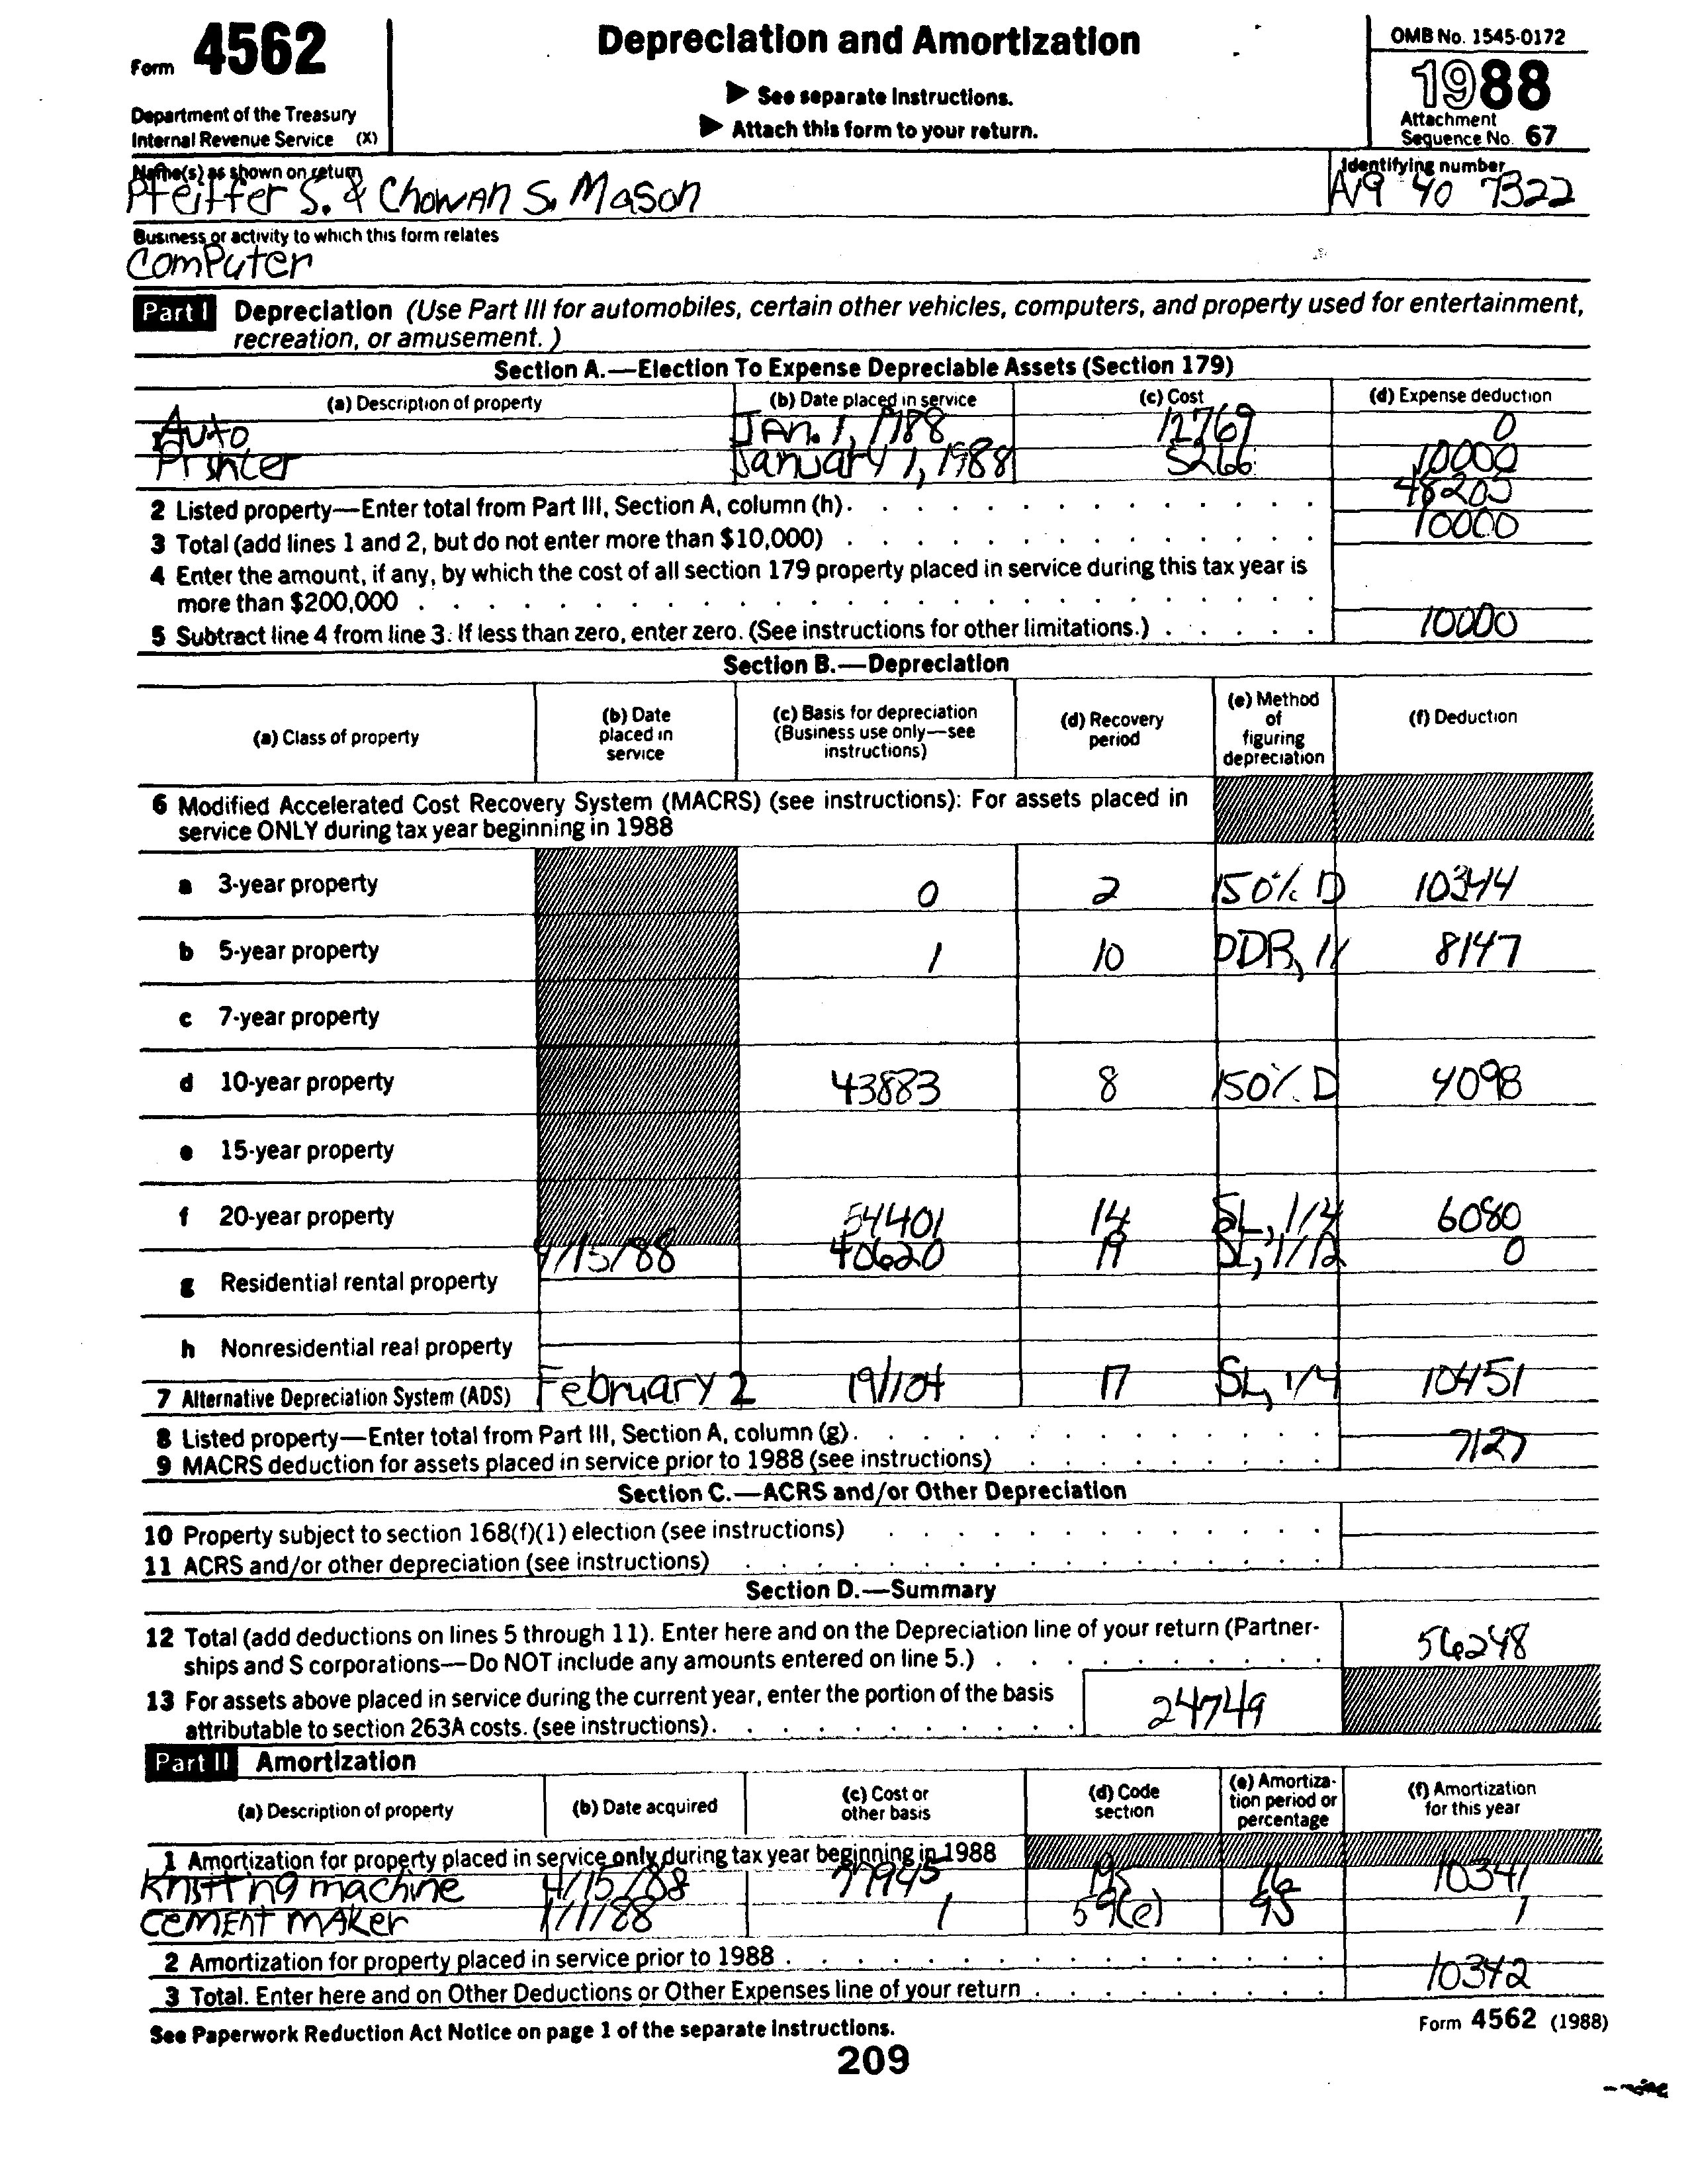 Form 4562
Depreciation and Amortization
OMB No. 1545-0172
1988
Department of the Treasury
Internal Revenue Service (X)
▶ See separate instructions.
▶ Attach this form to your return.
Attachment
Sequence No. 67
Name(s) as shown on return
Pfeiffer S. & Chowan S. Mason
Identifying number
40 7322
Business or activity to which this form relates
Computer
Part I Depreciation (Use Part III for automobiles, certain other vehicles, computers, and property used for entertainment,
recreation, or amusement.)
Section A.—Election To Expense Depreciable Assets (Section 179)
(a) Description of property (b) Date placed in service (c) Cost (d) Expense deduction
1 Auto Jan. 1, 1988 12769 0
Printer January 1, 1988 5266 10000
2 Listed property—Enter total from Part III, Section A, column (h). 48205
3 Total (add lines 1 and 2, but do not enter more than $10,000) 10000
4 Enter the amount, if any, by which the cost of all section 179 property placed in service during this tax year is
more than $200,000
5 Subtract line 4 from line 3. If less than zero, enter zero. (See instructions for other limitations.) 10000
Section B.—Depreciation
(a) Class of property (b) Date placed in service (c) Basis for depreciation (Business use only—see instructions) (d) Recovery period (e) Method of figuring depreciation (f) Deduction
6 Modified Accelerated Cost Recovery System (MACRS) (see instructions): For assets placed in
service ONLY during tax year beginning in 1988
a 3-year property 0 2 150% D 10344
b 5-year property 1 10 DDB, 1/ 8147
c 7-year property
d 10-year property 43883 8 150% D 4098
e 15-year property
f 20-year property 54401 14 SL, 1/4 6080
4/15/88 40620 19 SL, 1/12 0
g Residential rental property
h Nonresidential real property
7 Alternative Depreciation System (ADS) February 2 191104 17 SL, 1/4 10451
8 Listed property—Enter total from Part III, Section A, column (g). 7127
9 MACRS deduction for assets placed in service prior to 1988 (see instructions)
Section C.—ACRS and/or Other Depreciation
10 Property subject to section 168(f)(1) election (see instructions)
11 ACRS and/or other depreciation (see instructions)
Section D.—Summary
12 Total (add deductions on lines 5 through 11). Enter here and on the Depreciation line of your return (Partner-
ships and S corporations—Do NOT include any amounts entered on line 5.) 56248
13 For assets above placed in service during the current year, enter the portion of the basis
attributable to section 263A costs. (see instructions). 24749
Part II Amortization
(a) Description of property (b) Date acquired (c) Cost or other basis (d) Code section (e) Amortization period or percentage (f) Amortization for this year
1 Amortization for property placed in service only during tax year beginning in 1988
Knitting machine 4/15/88 77945 195 16 10341
cement maker 1/1/88 1 59(e) 95 1
2 Amortization for property placed in service prior to 1988
3 Total. Enter here and on Other Deductions or Other Expenses line of your return 10342
See Paperwork Reduction Act Notice on page 1 of the separate instructions.
Form 4562 (1988)
209